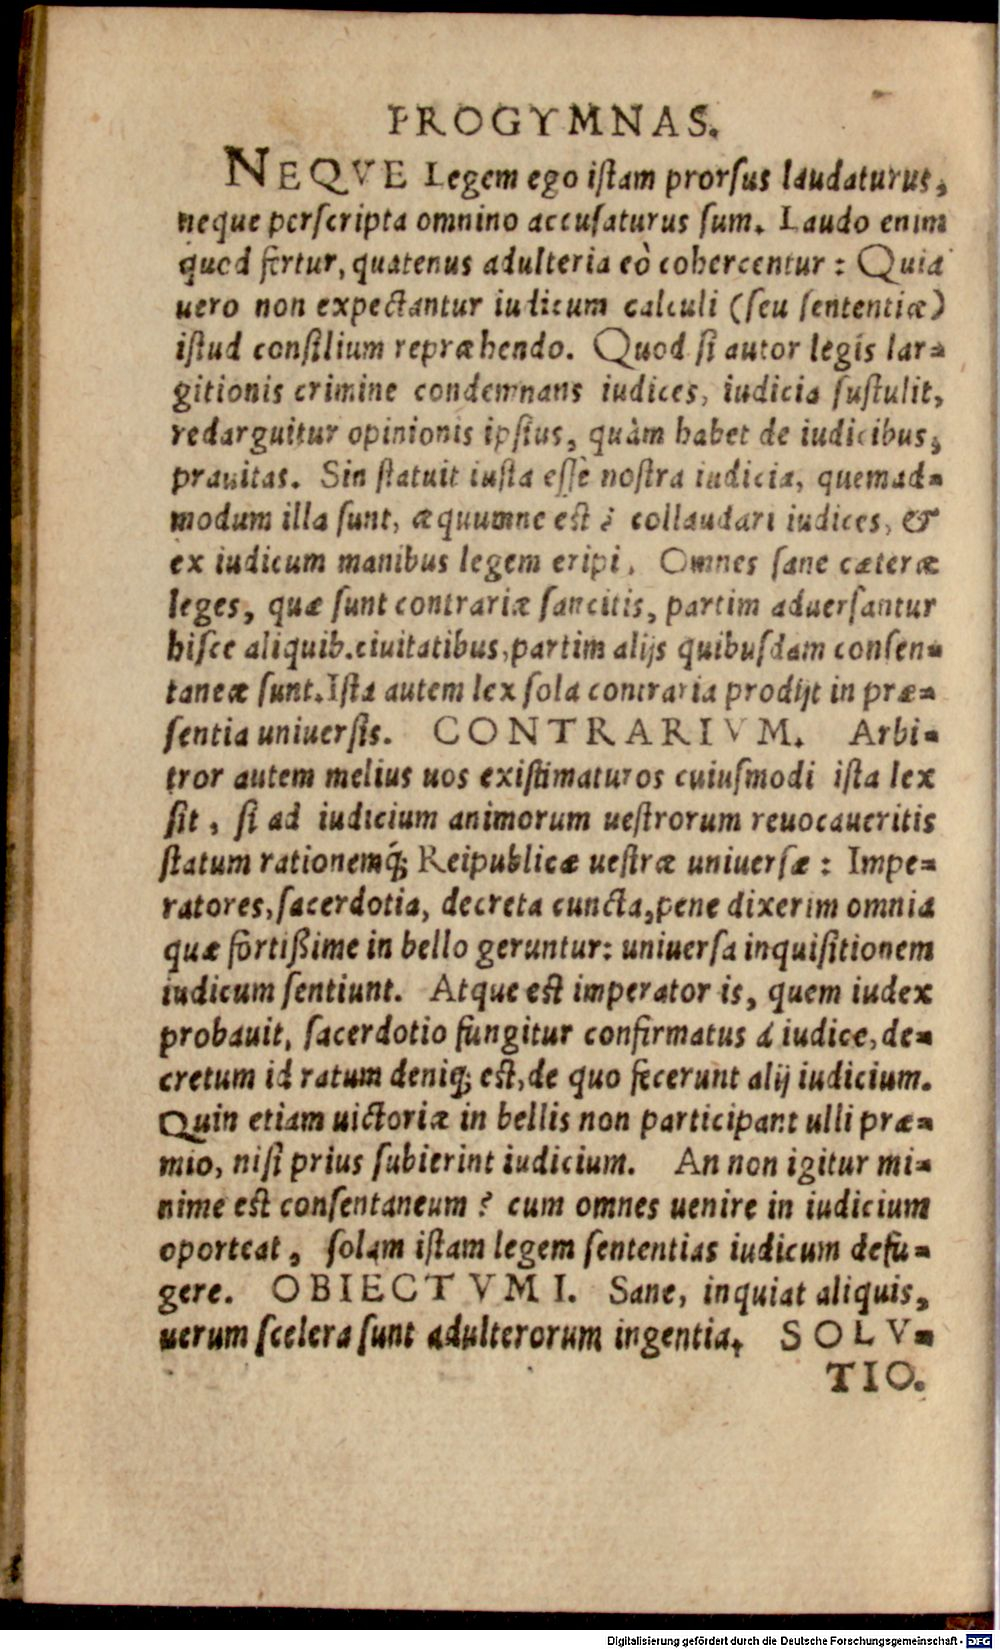 PROGYMNAS.
NEQVE Legem ego iſtam prorſus laudaturus,
neque perſcripta omnino accuſaturus ſum. Laudo enim
quod fertur, quatenus adulteria eò cohercentur: Quia
uero non expectantur iudicum calculi (ſeu ſententiæ)
iſtud conſilium repræhendo. Quod ſi autor legis lar-
gitionis crimine condemnans iudices, iudicia ſuſtulit,
redarguitur opinionis ipſius, quàm habet de iudicibus,
prauitas. Sin ſtatuit iuſta eſſè noſtra iudicia, quemad-
modum illa ſunt, æquumne eſt? collaudari iudices, &
ex iudicum manibus legem eripi. Omnes ſane cæteræ
leges, quæ ſunt contrariæ ſancitis, partim aduerſantur
hiſce aliquib. ciuitatibus, partim alijs quibuſdam conſen-
taneæ ſunt. Iſta autem lex ſola contraria prodijt in præ-
ſentia uniuerſis. CONTRARIVM. Arbi-
tror autem melius uos exiſtimaturos cuiuſmodi iſta lex
ſit, ſi ad iudicium animorum ueſtrorum reuocaueritis
ſtatum rationemq́; Reipublicæ ueſtræ uniuerſæ: Impe-
ratores, ſacerdotia, decreta cuncta, pene dixerim omnia
quæ fortißime in bello geruntur: uniuerſa inquiſitionem
iudicum ſentiunt. Atque eſt imperator is, quem iudex
probauit, ſacerdotio fungitur confirmatus á iudice, de-
cretum id ratum deniq; eſt, de quo fecerunt alij iudicium.
Quin etiam uictoriæ in bellis non participant ulli præ-
mio, niſi prius ſubierint iudicium. An non igitur mi-
nime eſt conſentaneum? cum omnes uenire in iudicium
oporteat, ſolam iſtam legem ſententias iudicum defu-
gere. OBIECTVM I. Sane, inquiat aliquis,
uerum ſcelera ſunt adulterorum ingentia. SOLV-
TIO.
Digitalisierung gefördert durch die Deutsche Forschungsgemeinschaft - DFG